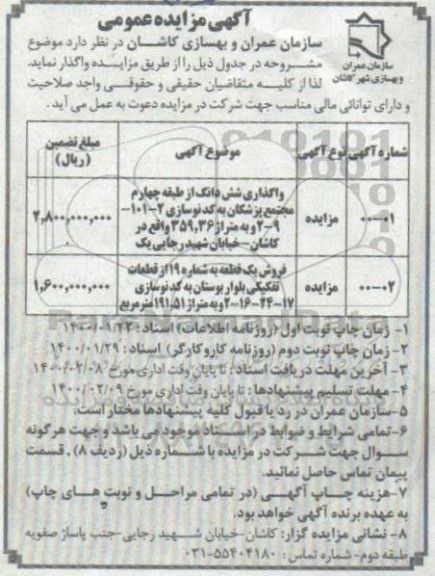 آگهی مزایده عمومی
سازمان عمران
و بهسازی شهر کاشان
سازمان عمران و بهسازی کاشان در نظر دارد موضوع
مشروحه در جدول ذیل را از طریق مزایده واگذار نماید.
لذا از کلیه متقاضیان حقیقی و حقوقی واجد صلاحیت
و دارای توانائی مالی مناسب جهت شرکت در مزایده دعوت به عمل می آید.
شماره آگهی نوع آگهی موضوع آگهی مبلغ تضمین (ریال)
۰۰-۰۱ مزایده واگذاری شش دانگ از طبقه چهارم
مجتمع پزشکان به کد نوسازی ۲-۱۰۱-
۹-۲ و به متراژ ۳۵۹,۳۶ واقع در
کاشان - خیابان شهید رجایی یک ۲,۸۰۰,۰۰۰,۰۰۰
۰۰-۰۲ مزایده فروش یک قطعه به شماره ۱۹ از قطعات
تفکیکی بلوار بوستان به کد نوسازی
۱۷-۲۴-۱۶-۲ و به متراژ ۱۹۱,۵۱ مترمربع ۱,۶۰۰,۰۰۰,۰۰۰
۱- زمان چاپ نوبت اول (روزنامه اطلاعات) اسناد: ۱۴۰۰/۰۱/۲۳
۲- زمان چاپ نوبت دوم (روزنامه کاروکارگر) اسناد: ۱۴۰۰/۰۱/۲۹
۳- آخرین مهلت دریافت اسناد: تا پایان وقت اداری مورخ ۱۴۰۰/۰۲/۰۸
۴- مهلت تسلیم پیشنهادها: تا پایان وقت اداری مورخ ۱۴۰۰/۰۲/۰۹
۵- سازمان عمران در رد یا قبول کلیه پیشنهادها مختار است.
۶- تمامی شرایط و ضوابط در اسناد موجود می باشد و جهت هرگونه
سوال جهت شرکت در مزایده با شماره ذیل (ردیف ۸)، قسمت
پیمان تماس حاصل نمائید.
۷- هزینه چاپ آگهی (در تمامی مراحل و نوبت های چاپ)
به عهده برنده آگهی خواهد بود.
۸- نشانی مزایده گزار: کاشان-خیابان شهید رجایی-جنب پاساژ صفویه
طبقه دوم- شماره تماس: ۵۵۴۰۴۱۸۰-۰۳۱